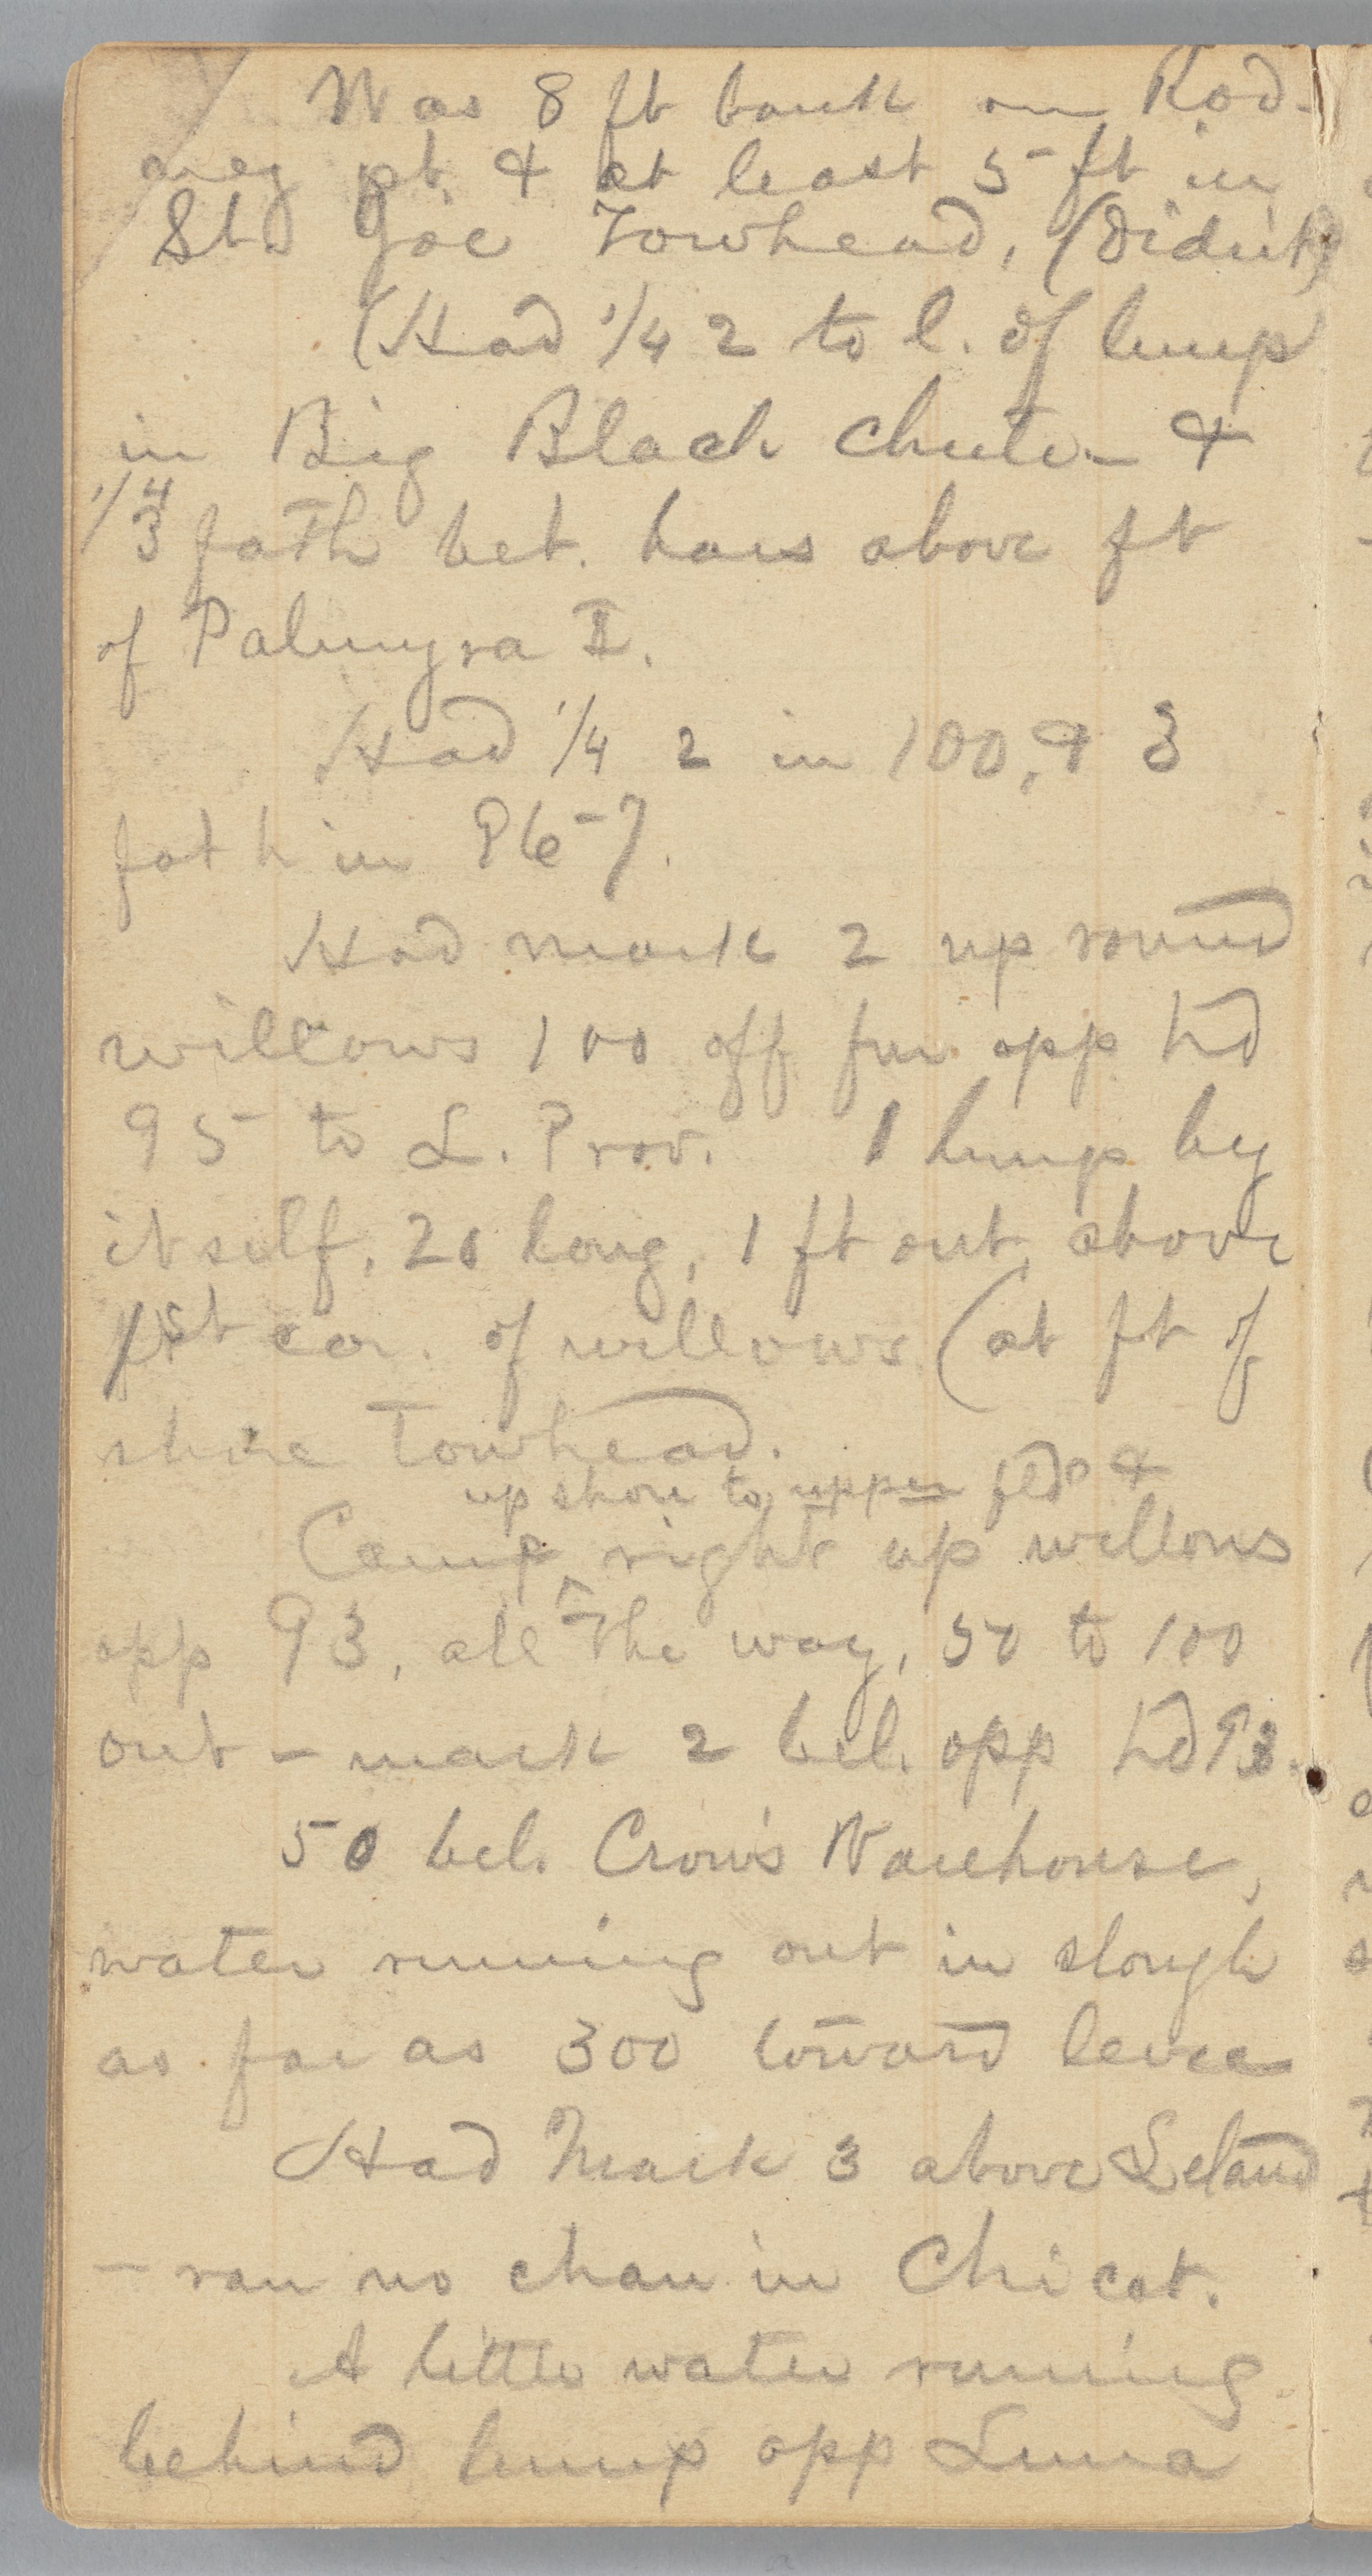 Was 8 ft bank on Rod-
ney pt. & at least 5 ft in
St. Joe Towhead, (Didn't)
(Had 1/4 2 to l. of lump
in Big Black chute — &
1/4 3 fath bet. bars above ft
of Palmyra I.
Had 1/4 2 in 100, & 3
fath in 96-7.
Had mark 2 up round
willows 100 off fur opp hd
95 to L. Prov. 1 lump by
itself, 20 long, 1 ft out, above
1st cor. of willows (at ft of
shore Towhead.
up shore to upper fld &
Came ^ right up willows
opp 93, all the way, 50 to 100
out — mark 2 bel. opp hd 93.
50 bel. Crow's Warehouse,
water running out in slough
as far as 300 toward levee
Had Mark 3 above Leland
— ran no chan in Chicot.
A little water running
behind lump opp Luna